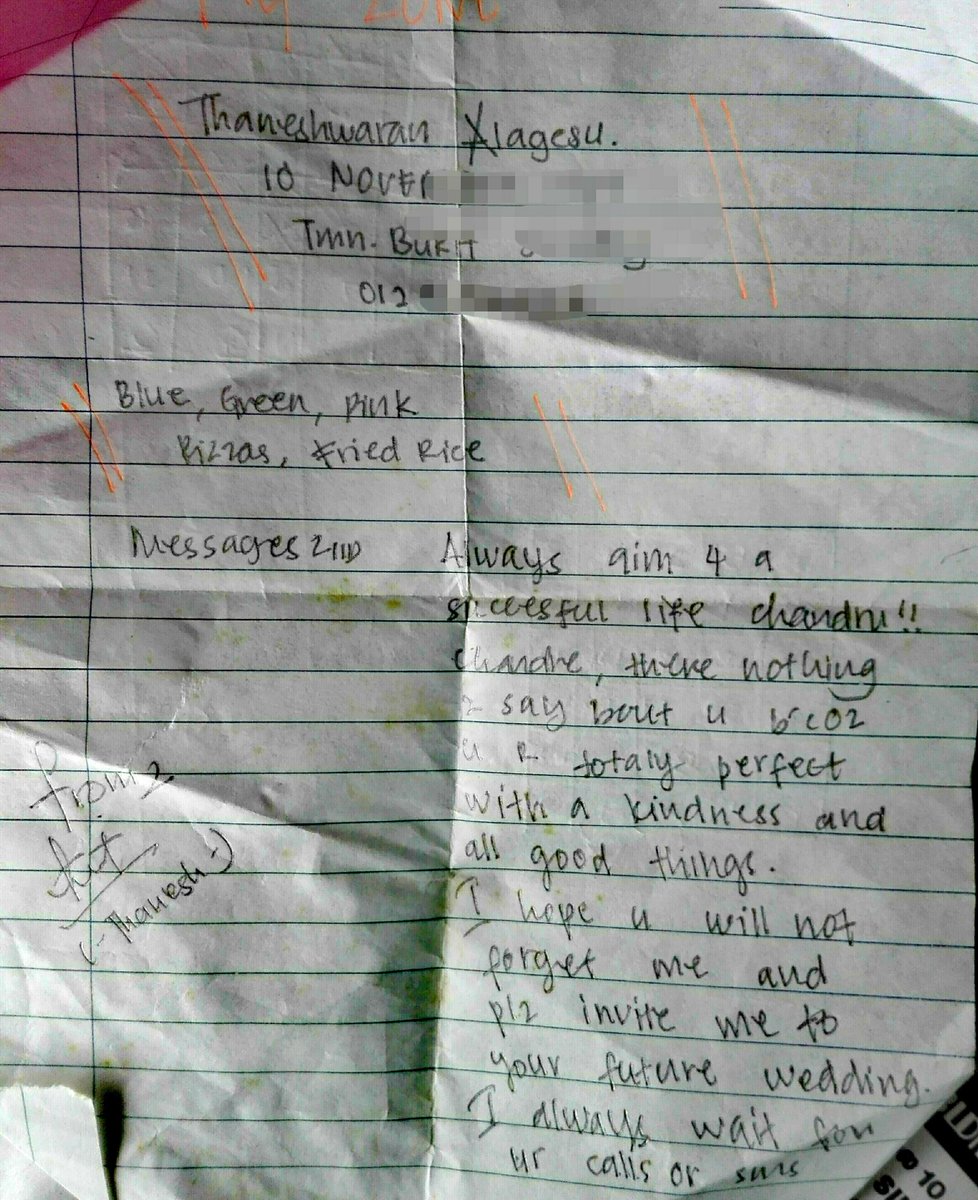 My Zone
Thaneshwaran Alagesu.
10 NOVE
Tmn. BUKIT
012
Blue, Green, Pink
Pizzas, Fried Rice
Messages
Always aim 4 a
successful life chandru!!
Chandre, there nothing
2 say bout u b'coz
u R totaly perfect
with a kindness and
all good things.
I hope u will not
forget me and
plz invite me to
your future wedding.
I always wait for
ur calls or sms
from
(- Thanesh -)
10